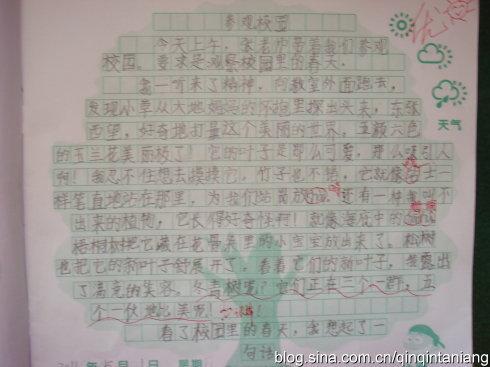 参观校园
今天上午，老师带着我们参观
校园。要求是观察校园里的春天。
我一听来了精神，向教室外面跑去，
发现小草从大地妈妈的怀抱里探出头来，东张
西望，好奇地打量这个美丽的世界，五颜六色
的玉兰花美丽极了！它的叶子是那么可爱，那么吸引人
啊！我忍不住想去摸摸它。竹子也不错，它就像士一
样笔直地站在那里，为我们站岗放。还有一种我叫不
出来的植物，它长得好奇怪啊！就像海底中的
梧桐树把它藏在花骨朵里的小宝宝放出来了。松树
也把它的新叶子舒展开了。看着它们的新叶子，我露出
了高兴的笑容。冬青树呢？它们正在三个一群，五
个一伙地比美呢！
看了校园里的春天，我想起了一
句诗
天气
年 月 日 星期
blog.sina.com.cn/qinqintaniang